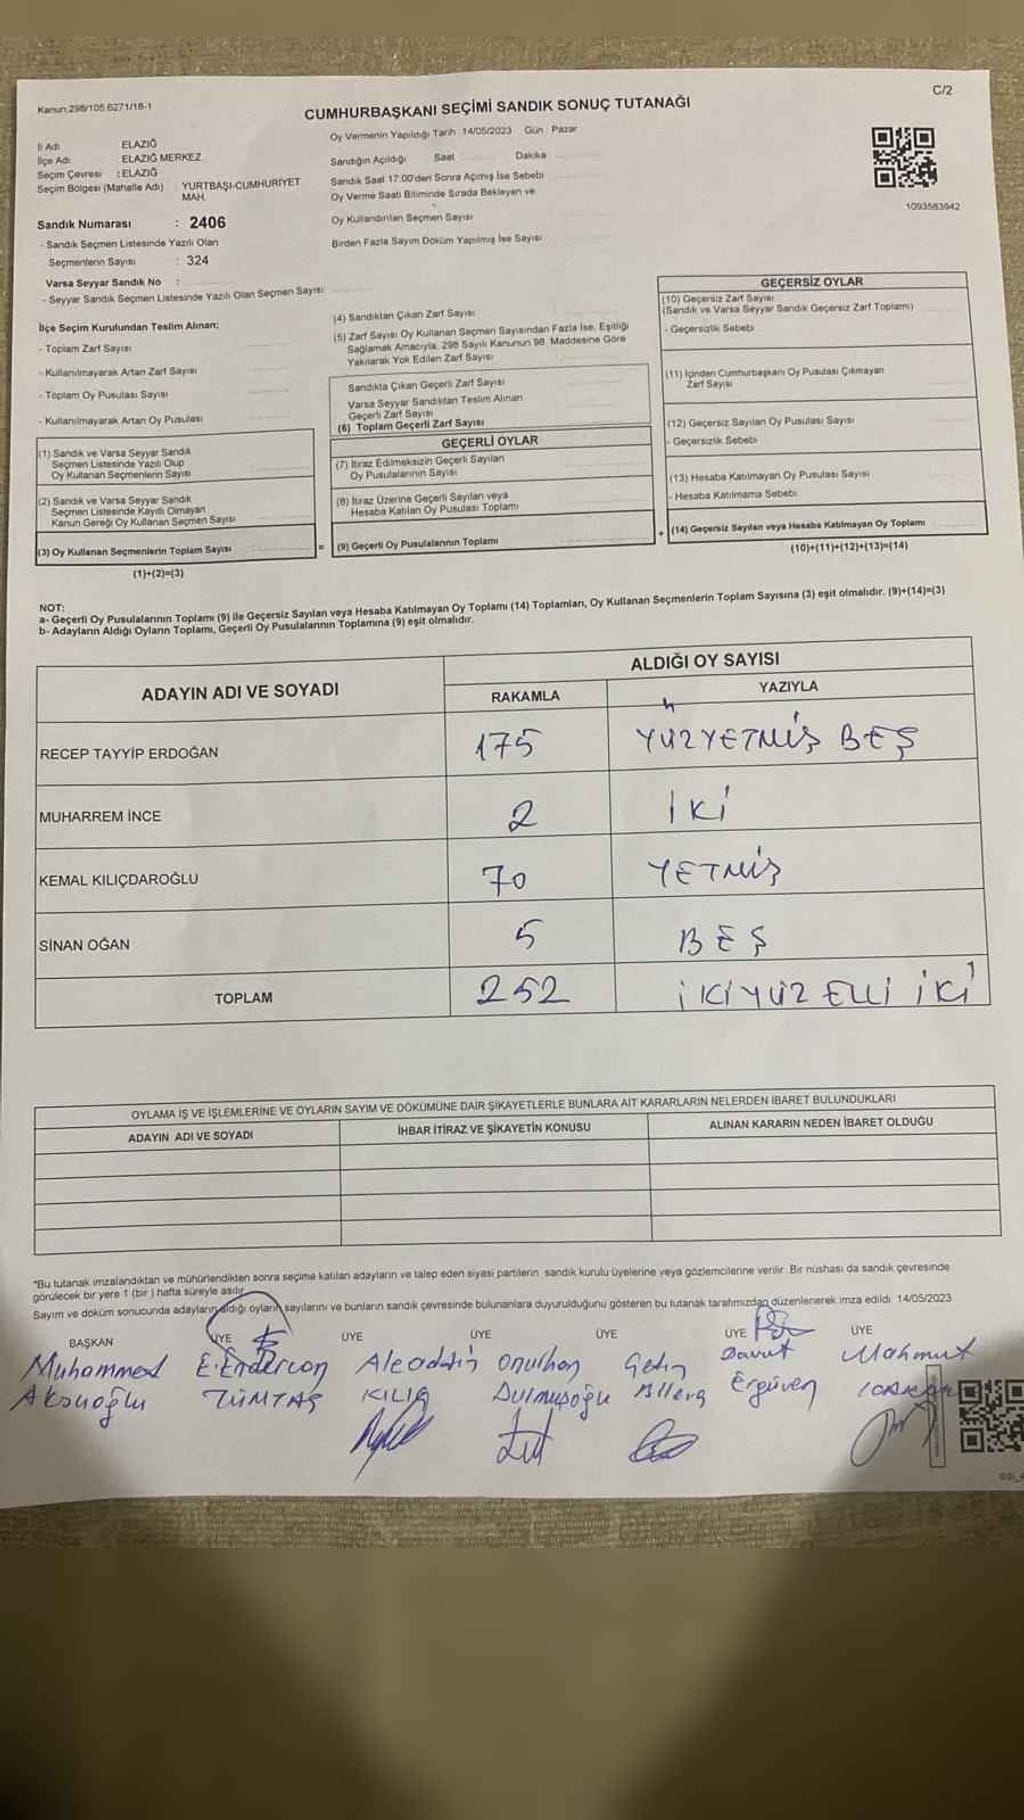 Kanun:298/105 6271/18-1
C/2
CUMHURBAŞKANI SEÇİMİ SANDIK SONUÇ TUTANAĞI
İl Adı ELAZIĞ
İlçe Adı ELAZIĞ MERKEZ
Seçim Çevresi : ELAZIĞ
Seçim Bölgesi (Mahalle Adı) YURTBAŞI-CUMHURİYET
MAH.
Sandık Numarası : 2406
- Sandık Seçmen Listesinde Yazılı Olan
Seçmenlerin Sayısı : 324
Varsa Seyyar Sandık No :
- Seyyar Sandık Seçmen Listesinde Yazılı Olan Seçmen Sayısı
Oy Vermenin Yapıldığı Tarih 14/05/2023 Gün Pazar
Sandığın Açıldığı Saat Dakika
Sandık Saat 17:00'den Sonra Açımış İse Sebebi
Oy Verme Saati Bitiminde Sırada Bekleyen ve
Oy Kullandırılan Seçmen Sayısı
Birden Fazla Sayım Döküm Yapılmış İse Sayısı
1093583942
İlçe Seçim Kurulundan Teslim Alınan;
- Toplam Zarf Sayısı
- Kullanılmayarak Artan Zarf Sayısı
- Toplam Oy Pusulası Sayısı
- Kullanılmayarak Artan Oy Pusulası
(1) Sandık ve Varsa Seyyar Sandık
Seçmen Listesinde Yazılı Olup
Oy Kullanan Seçmenlerin Sayısı
(2) Sandık ve Varsa Seyyar Sandık
Seçmen Listesinde Kayıtlı Olmayan
Kanun Gereği Oy Kullanan Seçmen Sayısı
(3) Oy Kullanan Seçmenlerin Toplam Sayısı
(1)+(2)=(3)
(4) Sandıktan Çıkan Zarf Sayısı
(5) Zarf Sayısı Oy Kullanan Seçmen Sayısından Fazla İse, Eşitliği
Sağlamak Amacıyla, 298 Sayılı Kanunun 98. Maddesine Göre
Yakılarak Yok Edilen Zarf Sayısı
Sandıkta Çıkan Geçerli Zarf Sayısı
Varsa Seyyar Sandıktan Teslim Alınan
Geçerli Zarf Sayısı
(6) Toplam Geçerli Zarf Sayısı
GEÇERLİ OYLAR
(7) İtiraz Edilmeksizin Geçerli Sayılan
Oy Pusulalarının Sayısı
(8) İtiraz Üzerine Geçerli Sayılan veya
Hesaba Katılan Oy Pusulası Toplamı
= (9) Geçerli Oy Pusulalarının Toplamı
GEÇERSİZ OYLAR
(10) Geçersiz Zarf Sayısı
(Sandık ve Varsa Seyyar Sandık Geçersiz Zarf Toplamı)
- Geçersizlik Sebebi
(11) İçinden Cumhurbaşkanı Oy Pusulası Çıkmayan
Zarf Sayısı
(12) Geçersiz Sayılan Oy Pusulası Sayısı
- Geçersizlik Sebebi
(13) Hesaba Katılmayan Oy Pusulası Sayısı
- Hesaba Katılmama Sebebi
+ (14) Geçersiz Sayılan veya Hesaba Katılmayan Oy Toplamı
(10)+(11)+(12)+(13)=(14)
NOT:
a- Geçerli Oy Pusulalarının Toplamı (9) ile Geçersiz Sayılan veya Hesaba Katılmayan Oy Toplamı (14) Toplamları, Oy Kullanan Seçmenlerin Toplam Sayısına (3) eşit olmalıdır. (9)+(14)=(3)
b- Adayların Aldığı Oyların Toplamı, Geçerli Oy Pusulalarının Toplamına (9) eşit olmalıdır.
ADAYIN ADI VE SOYADI
ALDIĞI OY SAYISI
RAKAMLA YAZIYLA
RECEP TAYYİP ERDOĞAN 175 YÜZYETMİŞ BEŞ
MUHARREM İNCE 2 İKİ
KEMAL KILIÇDAROĞLU 70 YETMİŞ
SİNAN OĞAN 5 BEŞ
TOPLAM 252 İKİYÜZ ELLİ İKİ
OYLAMA İŞ VE İŞLEMLERİNE VE OYLARIN SAYIM VE DÖKÜMÜNE DAİR ŞİKAYETLERLE BUNLARA AİT KARARLARIN NELERDEN İBARET BULUNDUKLARI
ADAYIN ADI VE SOYADI İHBAR İTİRAZ VE ŞİKAYETİN KONUSU ALINAN KARARIN NEDEN İBARET OLDUĞU
*Bu tutanak imzalandıktan ve mühürlendikten sonra seçime katılan adayların ve talep eden siyasi partilerin sandık kurulu üyelerine veya gözlemcilerine verilir. Bir nüshası da sandık çevresinde
görülecek bir yere 1 (bir) hafta süreyle asılır.
Sayım ve döküm sonucunda adayların aldığı oyların sayılarını ve bunların sandık çevresinde bulunanlara duyurulduğunu gösteren bu tutanak tarafımızdan düzenlenerek imza edildi. 14/05/2023
BAŞKAN ÜYE ÜYE ÜYE ÜYE ÜYE ÜYE
Muhammed E.Endercan Aleaddin Onurhan Davut Mahmut
TÜMTAŞ KILIÇ Ergüven